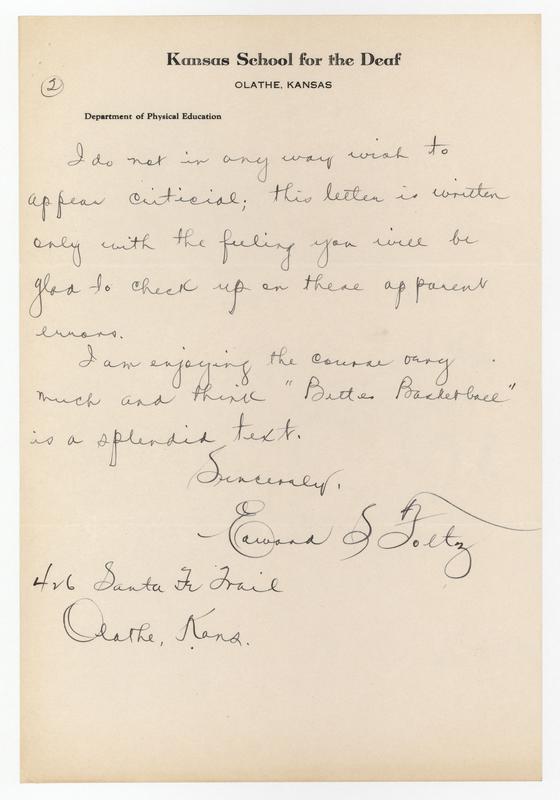 Kansas School for the Deaf
OLATHE, KANSAS
2
Department of Physical Education
I do not in any way wish to
appear criticial; this letter is written
only with the feeling you will be
glad to check up on these apparent
errors.
I am enjoying the course very
much and think "Better Basketball"
is a splendid text.
Sincerely,
Edward S Foltz
426 Santa Fe Trail
Olathe, Kans.